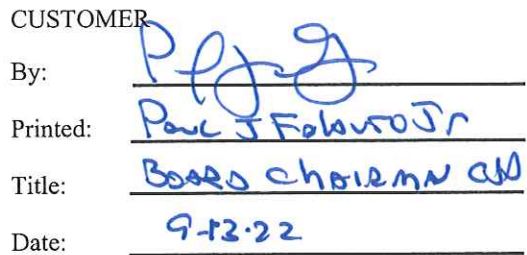 CUSTOMER
By:
Printed: Paul J
Title: BOARD ChAIRMAN
Date: 9-13-22